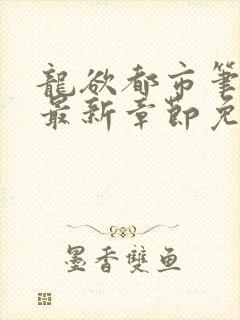 龍欲都市筆
最新章節免
墨香雙魚